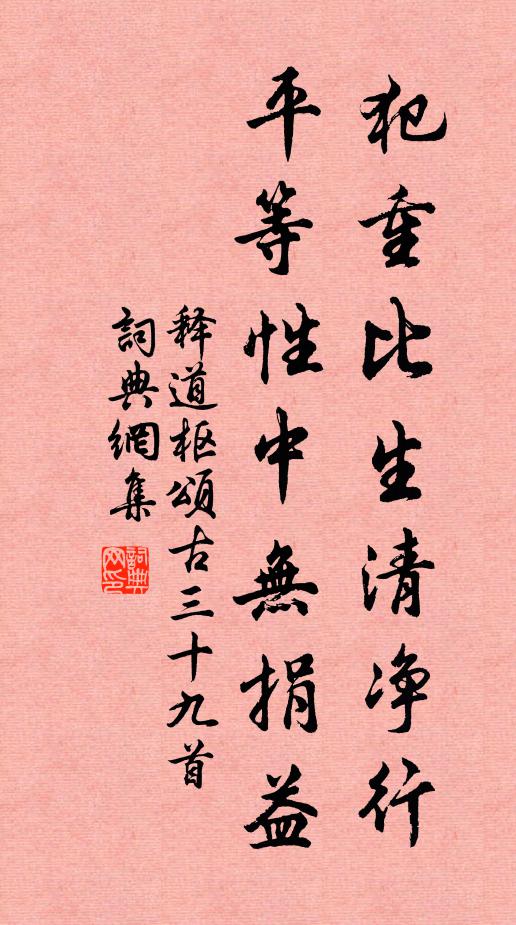 犯重比生清净行
平等性中無捐益
释道枢頌古三十九首
詞典網集
詞典网印